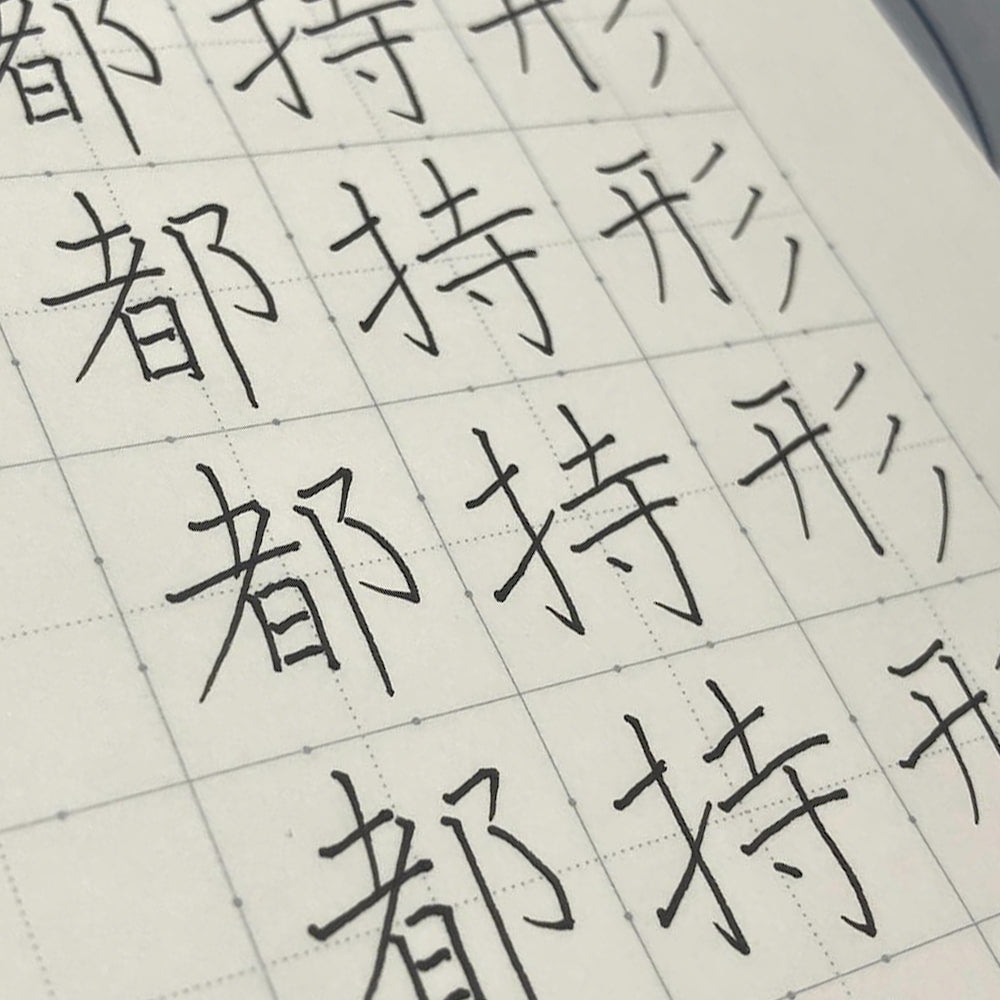 都持形
都持形
都持形
都持形